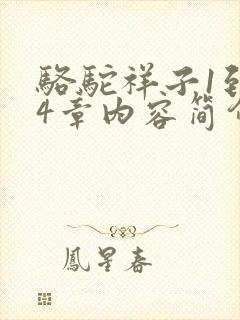 駱駝祥子1到
4章内容简介
鳳星春